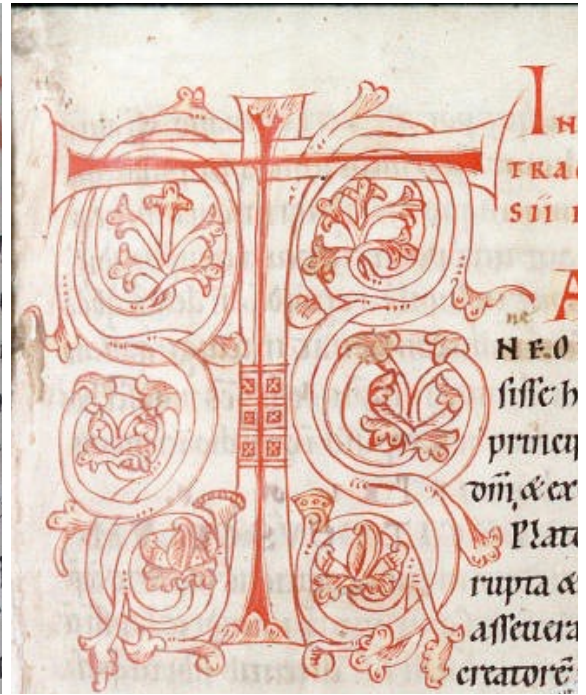 T
IN
TRAC
SII
A
ne
NEO
sisse h
princip
dñi, & ex
Plato
rupta &
asseuera
creatorē